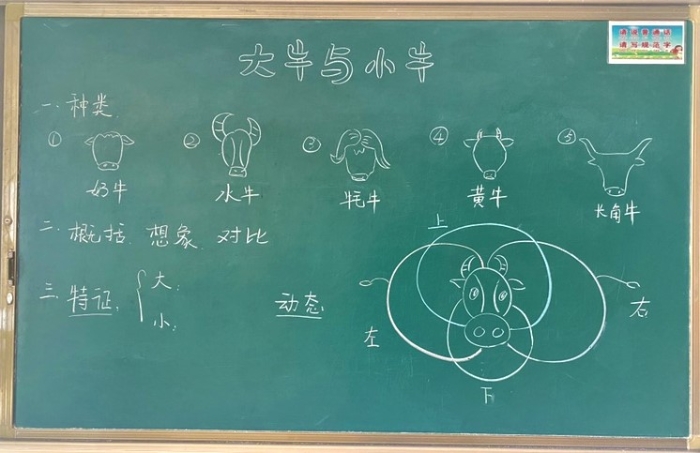 请说普通话
请写规范字
大牛与小牛
一.种类
① ② ③ ④ ⑤
奶牛 水牛 牦牛 黄牛 长角牛
二.概括 想象 对比
上
三.特证 大:
小:
动态
左 右
下